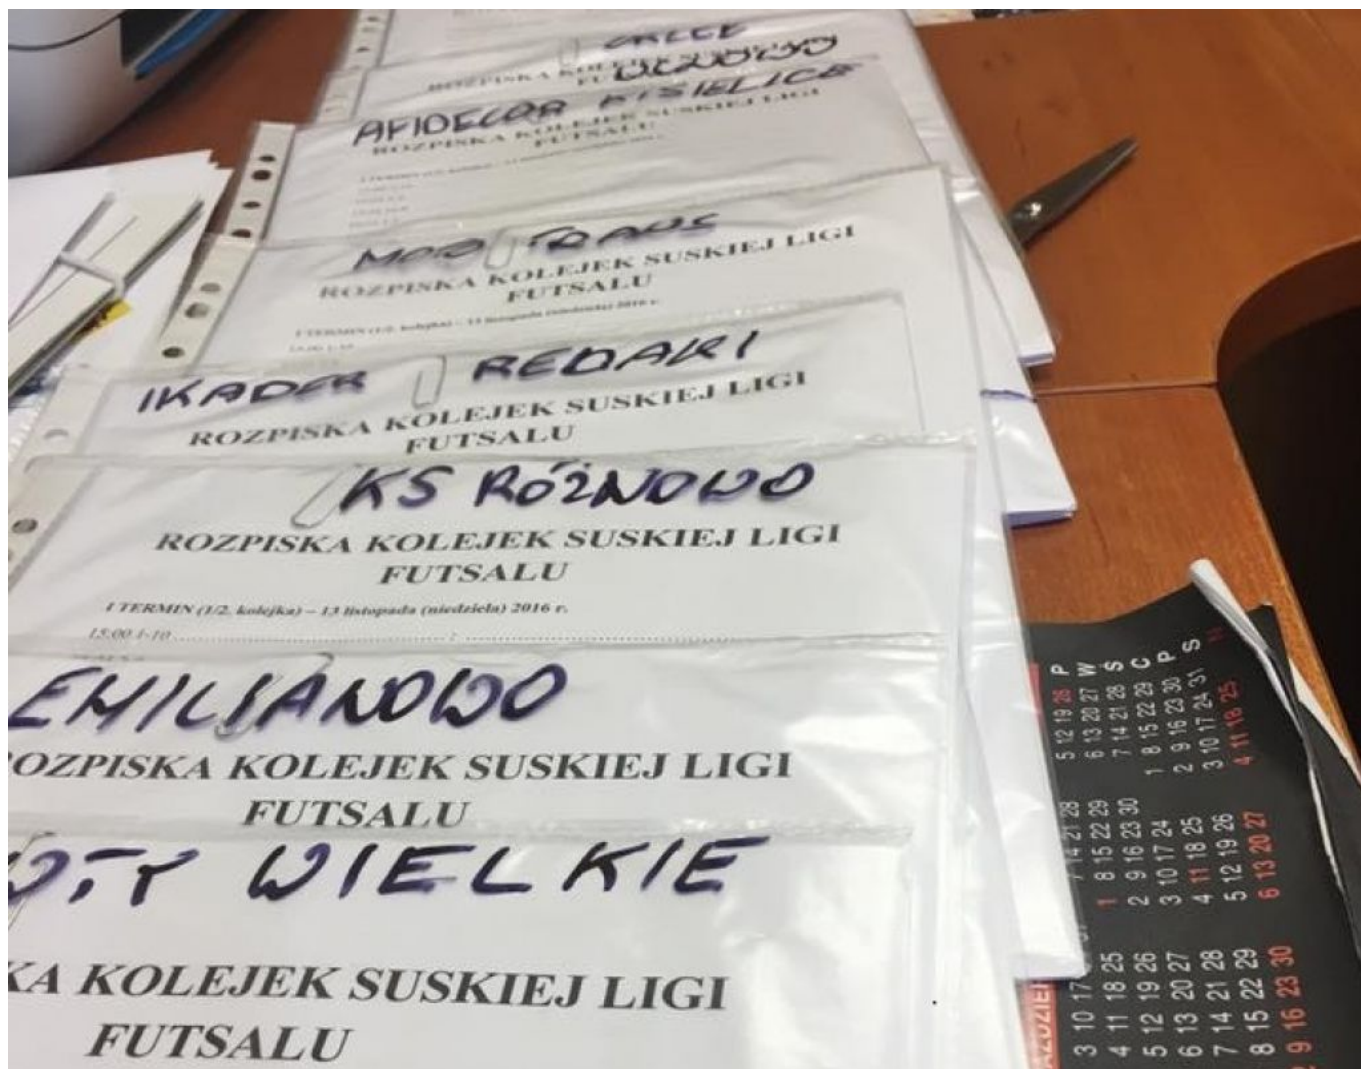 ROZPISKA KOLEJEK
FU
AFIDECOR KISIELICE
ROZPISKA KOLEJEK SUSKIEJ LIGI
FUTSALU
TRANS
ROZPISKA KOLEJEK SUSKIEJ LIGI
FUTSALU
I TERMIN (1/2. kolejka) – 13 listopada (niedziela) 2016 r.
IKADER REDAKI
ROZPISKA KOLEJEK SUSKIEJ LIGI
FUTSALU
KS RÓŻNOWO
ROZPISKA KOLEJEK SUSKIEJ LIGI
FUTSALU
I TERMIN (1/2. kolejka) – 13 listopada (niedziela) 2016 r.
15:00 1-10 :
EMILIANOWO
OZPISKA KOLEJEK SUSKIEJ LIGI
FUTSALU
OTY WIELKIE
KA KOLEJEK SUSKIEJ LIGI
FUTSALU
5 12 19 26 P
6 13 20 27 W
7 14 21 28 Ś
1 8 15 22 29 C
2 9 16 23 30 P
3 10 17 24 31 S
4 11 18 25 N
7 14 21 28
1 8 15 22 29
2 9 16 23 30
3 10 17 24
4 11 18 25
5 12 19 26
6 13 20 27
3 10 17
4 11 18 25
5 12 19 26
6 13 20 27
7 14 21 28
8 15 22 29
9 16 23 30